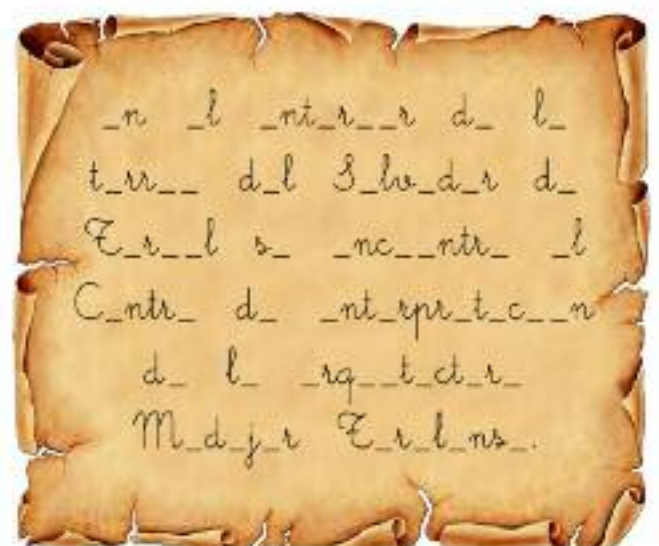 _n _l _nt_r__r d_ l_
t_rr__ d_l S_lv_d_r d_
T_r__l s_ _nc__ntr_ _l
C_ntr_ d_ _nt_rpr_t_c__n
d_ l_ _rq__t_ct_r_
M_d_j_r T_r_l_ns_.